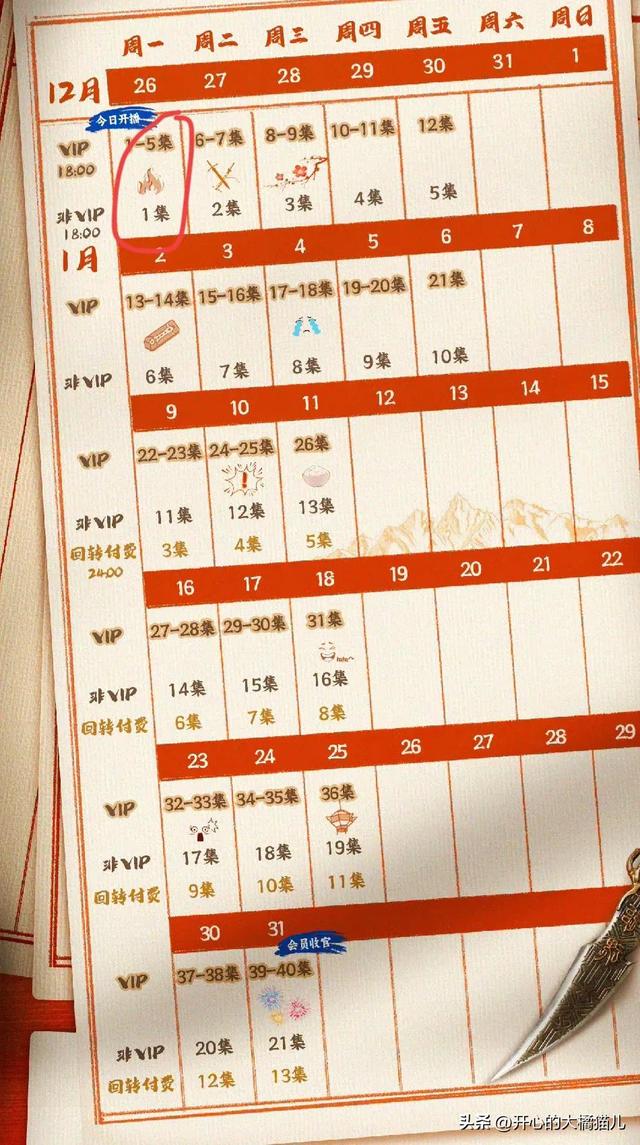 周一 周二 周三 周四 周五 周六 周日
12月 26 27 28 29 30 31 1
今日开播
VIP 18:00 1-5集 6-7集 8-9集 10-11集 12集
非VIP 18:00 1集 2集 3集 4集 5集
1月 2 3 4 5 6 7 8
VIP 13-14集 15-16集 17-18集 19-20集 21集
非VIP 6集 7集 8集 9集 10集
9 10 11 12 13 14 15
VIP 22-23集 24-25集 26集
非VIP 11集 12集 13集
回转付费 24:00 3集 4集 5集
16 17 18 19 20 21 22
VIP 27-28集 29-30集 31集
非VIP 14集 15集 16集
回转付费 6集 7集 8集
23 24 25 26 27 28 29
VIP 32-33集 34-35集 36集
非VIP 17集 18集 19集
回转付费 9集 10集 11集
30 31
会员收官
VIP 37-38集 39-40集
非VIP 20集 21集
回转付费 12集 13集
头条 @开心的大橘猫儿